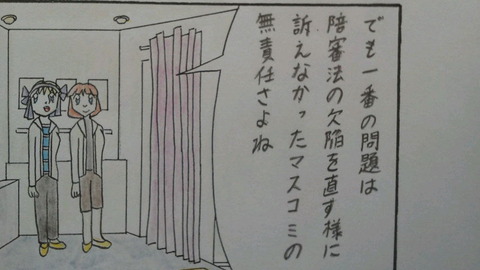 でも一番の問題は
陪審法の欠陥を直す様に
訴えなかったマスコミの
無責任さよね